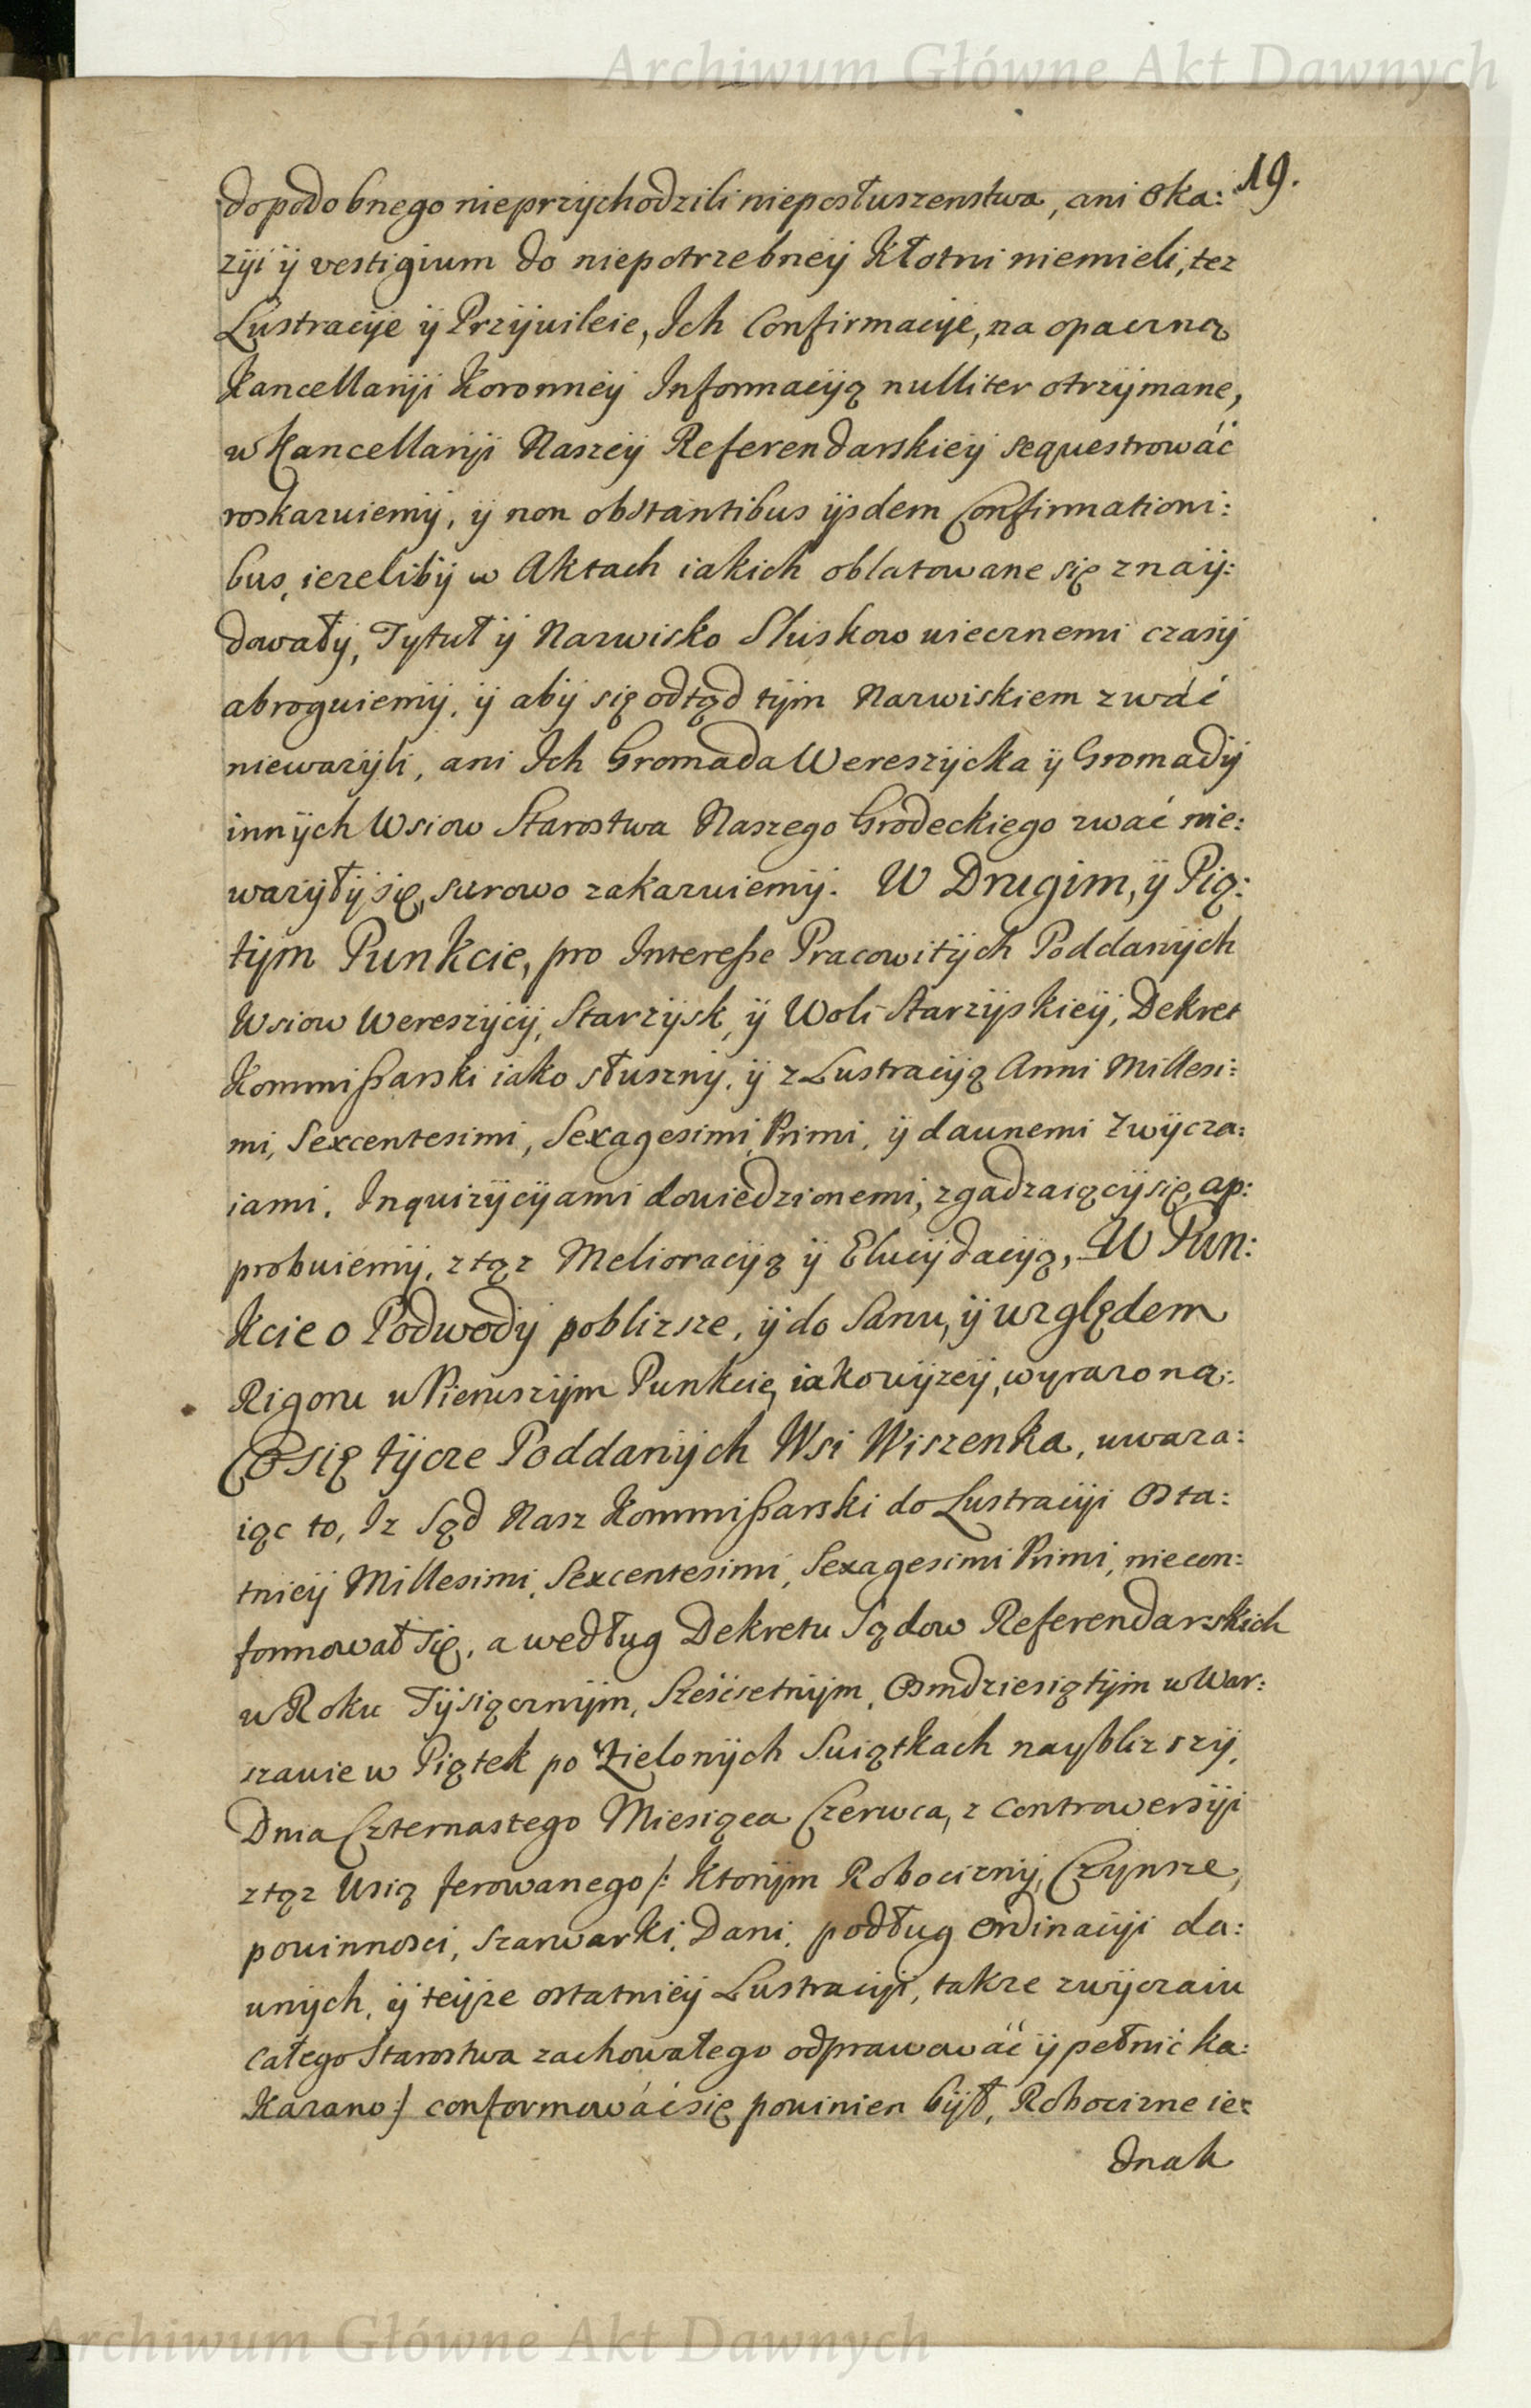 Archiwum Główne Akt Dawnych
19.
do podobnego nieprzychodzili nieposłuszenstwa, ani oka:
zyi ÿ vestigium do niepotrzebneÿ Kłotni niemieli, tez
Lustracÿe ÿ Przÿwileie, Ich Confirmacÿe, na opaczną
Kancellarÿi Koronneÿ Informacÿą nulliter otrzÿmane,
w Kancellarÿi Naszeÿ Referendarskieÿ sequestrowáć
roskazuiemÿ, ÿ non obstantibus ÿsdem Confirmationi:
bus, iezelibÿ w Aktach iakich oblatowane się znaÿ:
dowałÿ, Tytuł ÿ Nazwisko Sluskow wiecznemi czasÿ
abroguiemÿ, ÿ abÿ się odtąd tÿm Nazwiskiem zwáć
niewazÿli, ani Ich Gromada Wereszÿcka ÿ Gromadÿ
innÿch Wsiow Starostwa Naszego Grodeckiego zwać nie:
wazÿłÿ się, surowo zakazuiemÿ. W Drugim, ÿ Pią:
tÿm Punkcie, pro Interesse Pracowitÿch Poddanÿch
Wsiow Wereszÿcÿ, Starzÿsk, ÿ Woli Starzÿskieÿ, Dekret
Kommissarski iako słusznÿ, ÿ z Lustracÿą Anni Millesi:
mi, Sexcentesimi, Sexagesimi, Primi, ÿ dawnemi Zwÿcza:
iami, Inquizÿcÿami dowiedzionemi, zgadzaiącÿ się, ap:
probuiemÿ, z tąz Melioracÿą ÿ Elucÿdacÿą, W Pun:
Kcie o Podwodÿ poblizsze, ÿ do Sanu, ÿ względem
Rigoru w Pierwszÿm Punkcie, iako wÿzeÿ, wyrazoną:
Co się tÿcze Poddanÿch Wsi Wiszenka, uwaza:
iąc to, Iz Sąd Nasz Kommissarski do Lustracÿi Osta:
tnieÿ Millesimi, Sexcentesimi, Sexagesimi Primi, niecon:
formował się, a według Dekretu Sądow Referendarskich
w Roku Tÿsiącznÿm, Sześćsetnÿm, Osmdziesiątÿm w War:
szawie w Piątek po Zielonÿch Swiątkach nayblizszÿ,
Dnia Czternastego Miesiąca Czerwca, z controwersÿi
z tąz Wsią ferowanego /: Ktorÿm Robociznÿ, Czynsze,
powinnosci, szarwarki, Dani, podług ordinacÿi da:
wnÿch, ÿ teÿze ostatnieÿ Lustracÿi, takze zwÿczaiu
całego Starostwa zachowałego odprawowáć ÿ pełnić ka:
Kazano :/ conformowáć się powinien bÿł, Robocizne ie:
dnak
Archiwum Główne Akt Dawnych